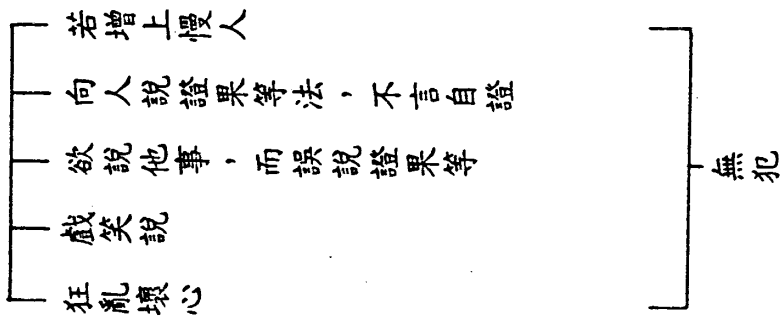 若增上慢人
向人說證果等法，不言自證
欲說他事，而誤說證果等
戲笑說
狂亂壞心
無犯